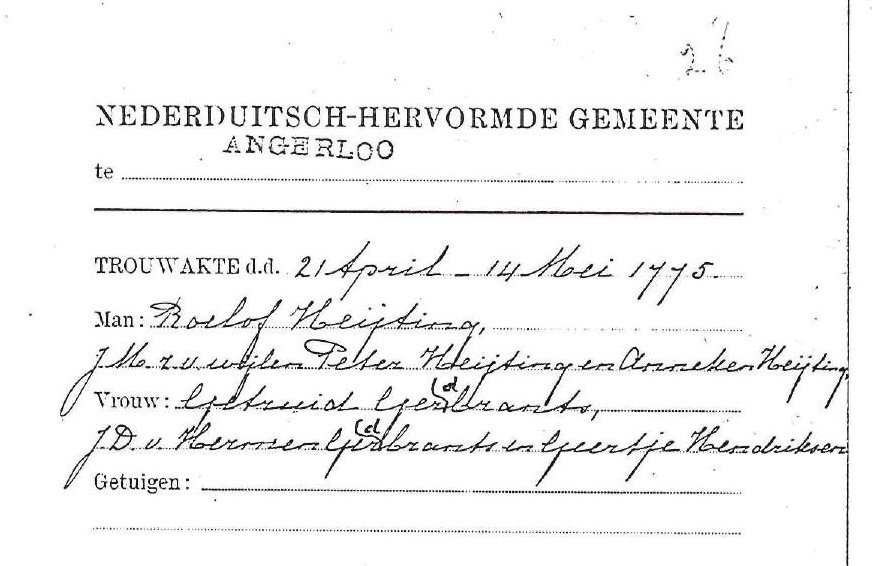 26
NEDERDUITSCH-HERVORMDE GEMEENTE
ANGERLOO
te
TROUWAKTE d.d. 21 April - 14 Mei 1775.
Man: Roelof Heijting,
J.M. z.v. wijlen Peter Heijting en Anneken Heijting,
Vrouw: Getruid Ger(d)brants,
J.D. v. Hermen Ger(d)brants en Geertje Hendriksen
Getuigen: